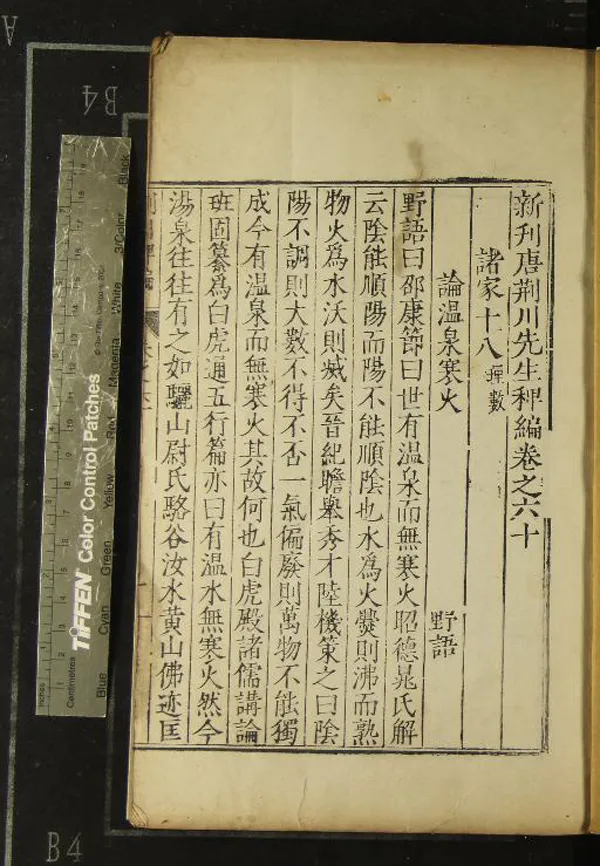 新刊唐荆川先生稗編卷之六十
諸家十八 曆數
論温泉寒火 野語
野語曰邵康節曰世有温泉而無寒火昭德晁氏解
云陰能順陽而陽不能順陰也水爲火爨則沸而熟
物火爲水沃則滅矣晉紀瞻舉秀才陸機策之曰陰
陽不調則大數不得不否一氣偏廢則萬物不能獨
成今有温泉而無寒火其故何也白虎殿諸儒講論
班固纂爲白虎通五行篇亦曰有温水無寒火然今
湯泉往往有之如驪山尉氏駱谷汝水黄山佛迹匡
TIFFEN Color Control Patches
Blue Cyan Green Yellow Red Magenta White 3/Color Black
Inches
Centimetres
B4
B4
A